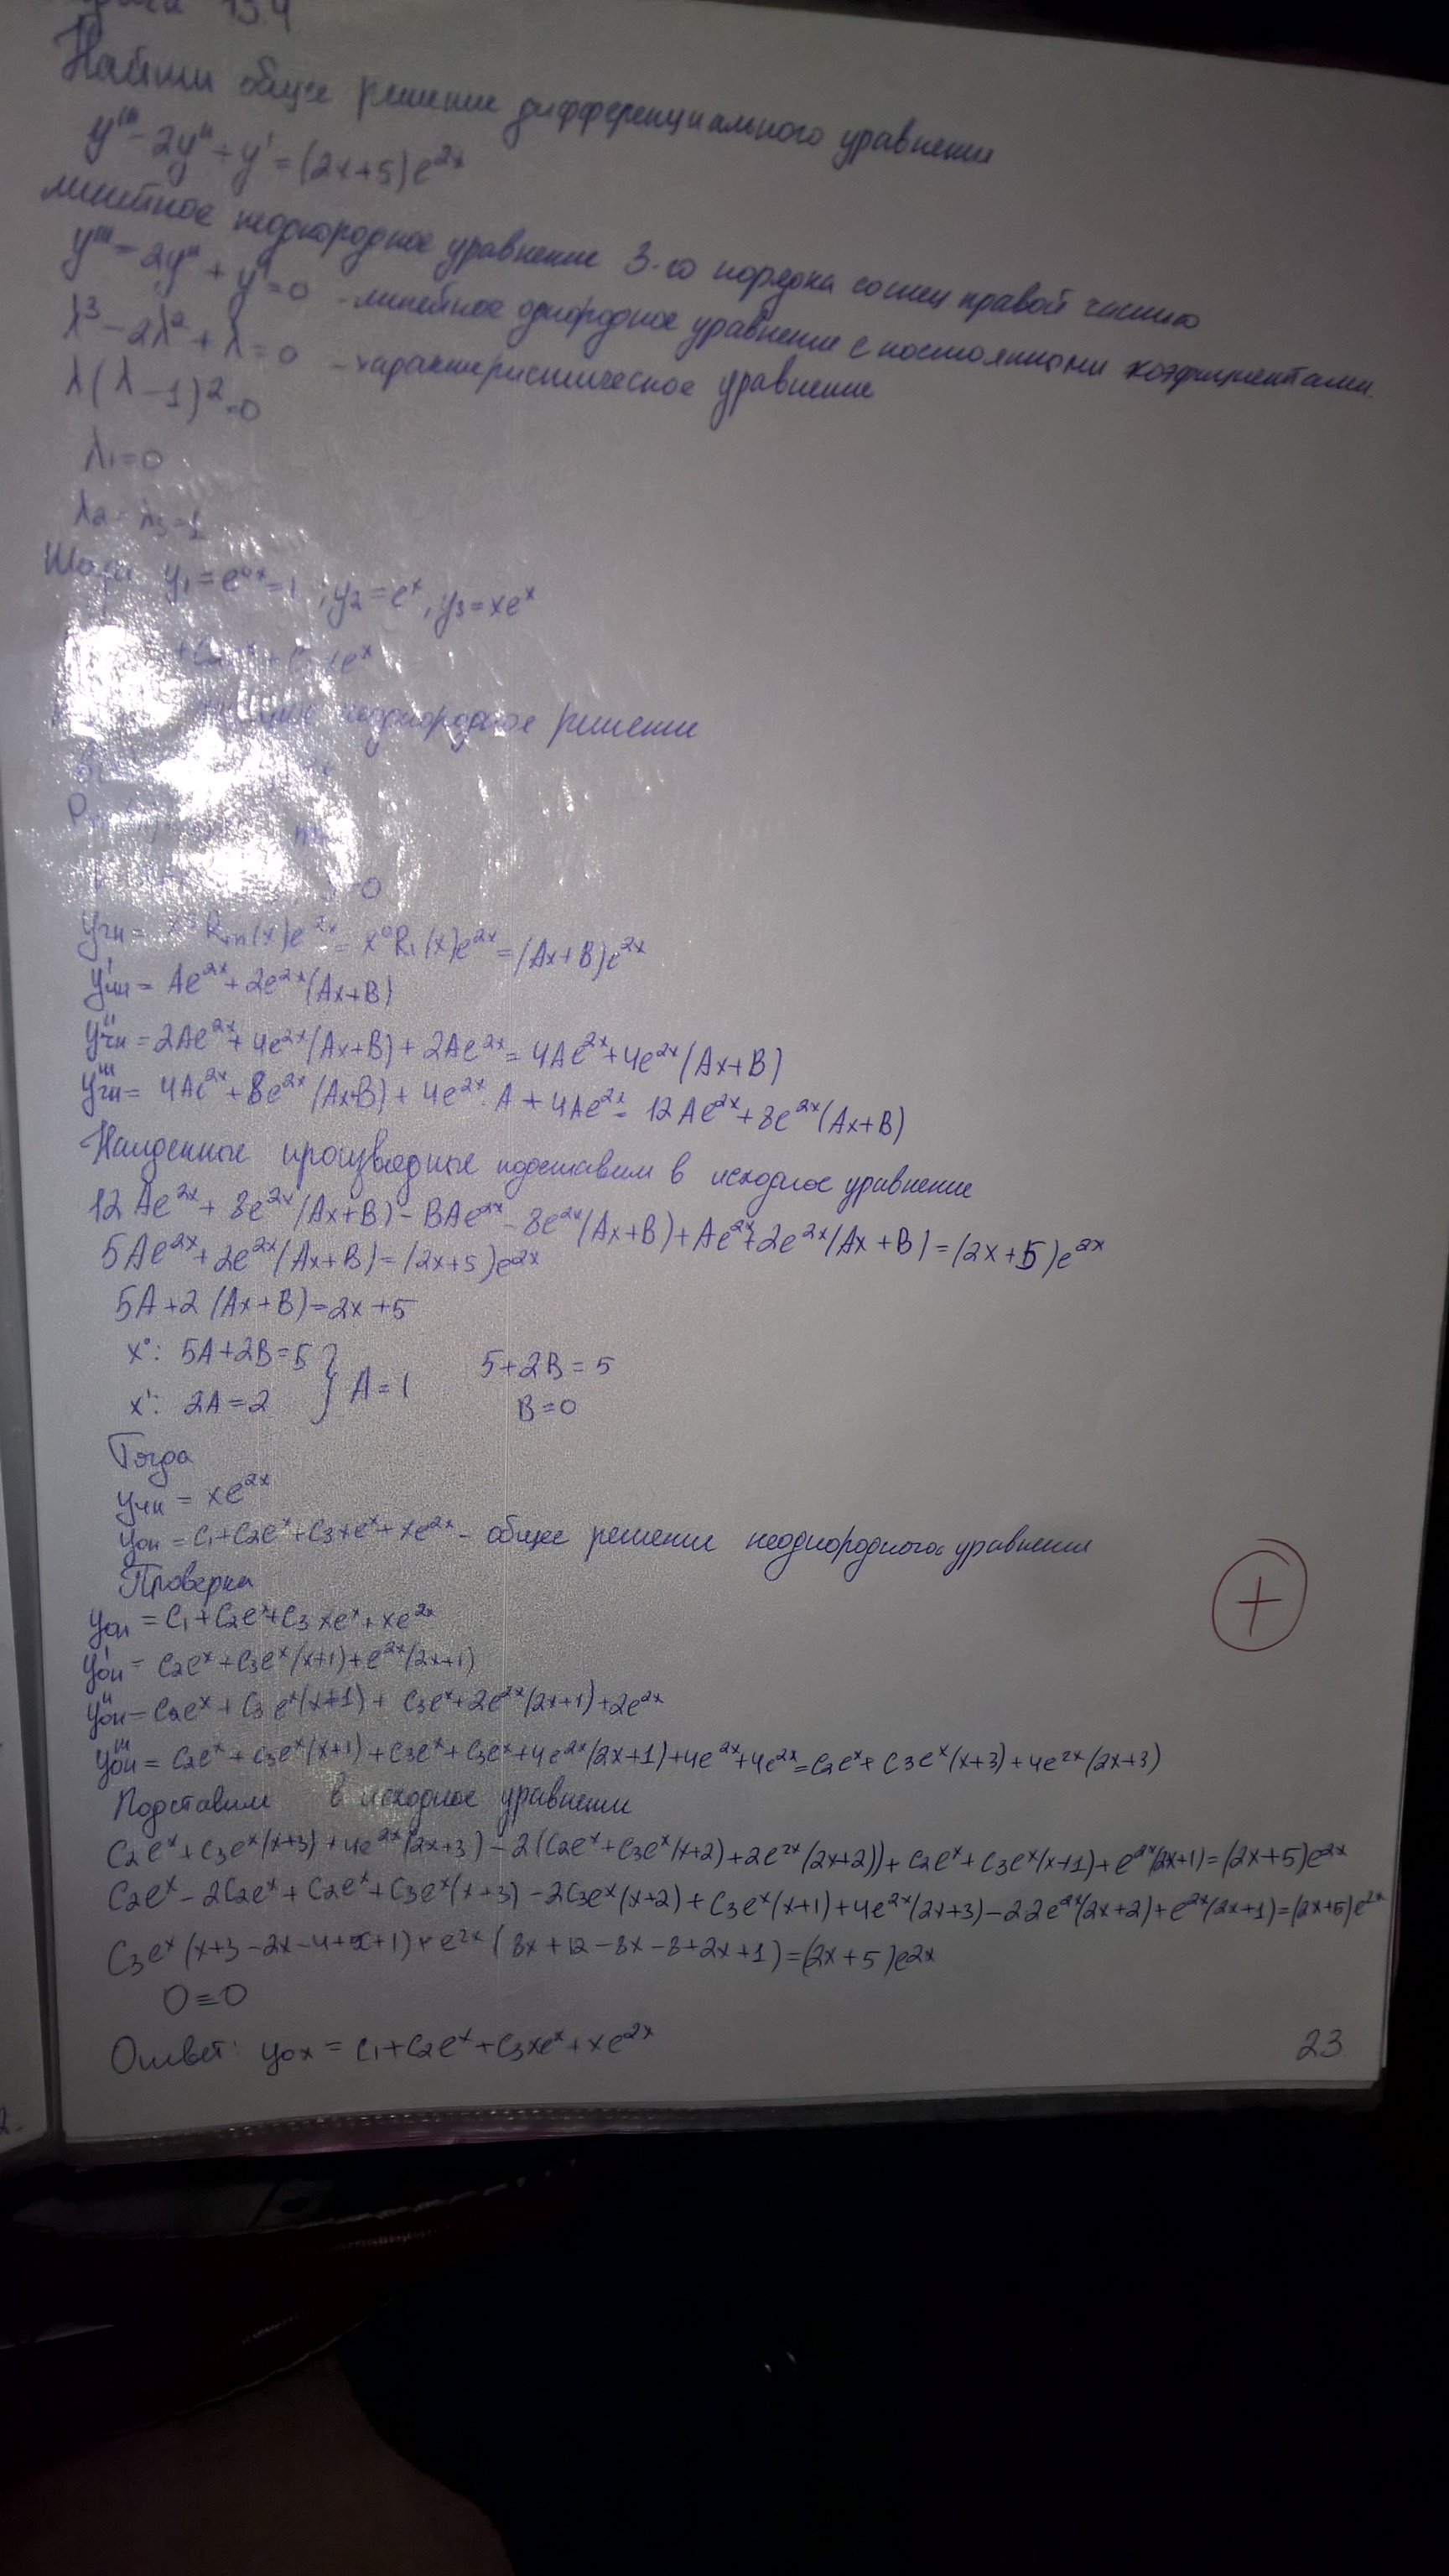 134
Найти общее решение дифференциального уравнения
y''' - 2y'' + y' = (2x+5)e^{2x}
линейное неоднородное уравнение 3-го порядка со спец правой частью
y''' - 2y'' + y' = 0 - линейное однородное уравнение с постоянными коэфициентами
λ^3 - 2λ^2 + λ = 0 - характеристическое уравнение
λ(λ-1)^2 = 0
λ1 = 0
λ2 = λ3 = 1
y1 = e^{0x} = 1 ; y2 = e^x, y3 = xe^x
неоднородное решение
=0
yчн = x^s Rm(x)e^{2x} = x^0 R1(x)e^{2x} = (Ax+B)e^{2x}
y'чн = Ae^{2x} + 2e^{2x}(Ax+B)
y''чн = 2Ae^{2x} + 4e^{2x}(Ax+B) + 2Ae^{2x} = 4Ae^{2x} + 4e^{2x}(Ax+B)
y'''чн = 4Ae^{2x} + 8e^{2x}(Ax+B) + 4e^{2x}·A + 4Ae^{2x} = 12Ae^{2x} + 8e^{2x}(Ax+B)
Найденные производные подставим в исходное уравнение
12Ae^{2x} + 8e^{2x}(Ax+B) - 8Ae^{2x} - 8e^{2x}(Ax+B) + Ae^{2x} + 2e^{2x}(Ax+B) = (2x+5)e^{2x}
5Ae^{2x} + 2e^{2x}(Ax+B) = (2x+5)e^{2x}
5A + 2(Ax+B) = 2x+5
x^0: 5A+2B=5 } A=1 5+2B=5
x^1: 2A=2 B=0
Тогда
yчн = xe^{2x}
yон = C1+C2e^x+C3xe^x+xe^{2x} - общее решение неоднородного уравнения
Проверка
yон = C1+C2e^x+C3xe^x+xe^{2x}
y'он = C2e^x+C3e^x(x+1)+e^{2x}(2x+1)
y''он = C2e^x + C3e^x(x+1) + C3e^x+2e^{2x}(2x+1)+2e^{2x}
y'''он = C2e^x + C3e^x(x+1)+C3e^x+C3e^x+4e^{2x}(2x+1)+4e^{2x}+4e^{2x} = C2e^x + C3e^x(x+3)+4e^{2x}(2x+3)
Подставим в исходное уравнение
C2e^x+C3e^x(x+3)+4e^{2x}(2x+3)-2(C2e^x+C3e^x(x+2)+2e^{2x}(2x+2))+C2e^x+C3e^x(x+1)+e^{2x}(2x+1)=(2x+5)e^{2x}
C2e^x-2C2e^x+C2e^x+C3e^x(x+3)-2C3e^x(x+2)+C3e^x(x+1)+4e^{2x}(2x+3)-2·2e^{2x}(2x+2)+e^{2x}(2x+1)=(2x+5)e^{2x}
C3e^x(x+3-2x-4+x+1)+e^{2x}(8x+12-8x-8+2x+1)=(2x+5)e^{2x}
0=0
Ответ: yох = C1+C2e^x+C3xe^x+xe^{2x}
+
23